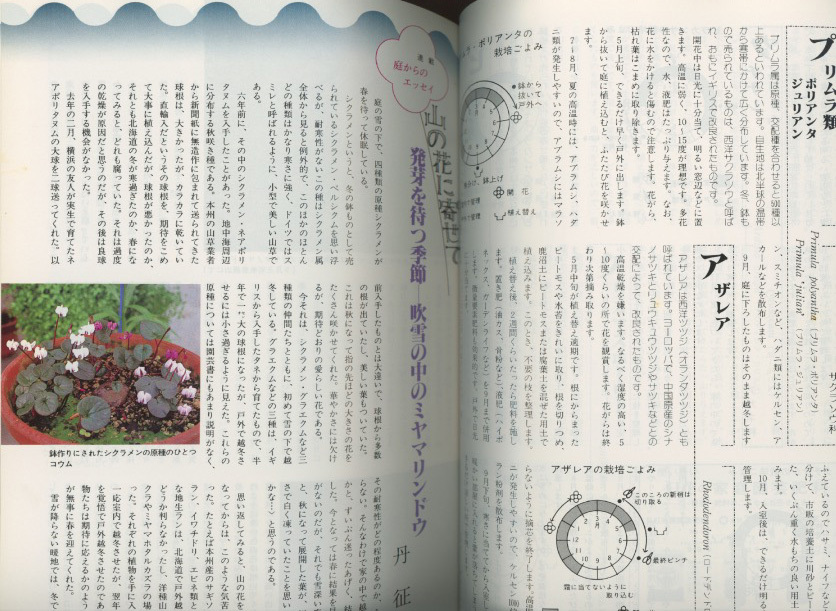 プリムラ類
ポリアンタ
ジュリアン
プリムラ属は原種、交配種を合わせると500種以
上あるといわれています。自生地は北半球の温帯
から寒帯にかけて広く分布しています。冬、鉢も
ので売られているものは、西洋サクラソウと呼ば
れ、おもにイギリスで改良されたものです。
開花中は日光に十分当て、明るい窓辺などに置
きます。高温に弱く、10〜15度が理想です。多花
性なので、水、液肥はたっぷり与えます。なお、
花に水をかけると傷むので注意します。花がら、
枯れ葉はこまめに取り除きます。
5月上旬、できるだけ早く戸外に出します。鉢
から抜いて庭に植え込むと、ふたたび花を咲かせ
ます。
7〜8月、夏の高温時には、アブラムシ、ハダ
ニ類が発生しやすいので、アブラムシにはマラソ
ン、スミチオンなど、ハダニ類にはケルセン、ア
カールなどを散布します。
9月、庭に下ろしたものはそのまま越冬します
栽培ごよみ
鉢から
抜いて
戸外へ
鉢上げ
開花
植え替え
Primula polyantha (プリムラ・ポリアンタ)
Primula "julian" (プリムラ・ジュリアン)
アザレア
アザレアは西洋ツツジ（オランダツツジ）とも
呼ばれています。ヨーロッパで、中国原産のシナ
ノサツキとリュウキュウツツジやサツキなどとの
交配によって、改良されたものです。
高温乾燥を嫌います。なるべく湿度の高い、5
〜10度くらいの所で花を観賞します。花がらは終
わり次第摘み取ります。
5月中旬が植え替え適期です。根にからまった
ピートモスや水苔をきれいに取り、根を切りつめ、
鹿沼土にピートモスまたは腐葉土を混ぜた用土で
植え込みます。このとき、不要の枝を整理します。
植え替え後、2週間くらいたったら肥料を施し
ます。置き肥（油カス、骨粉など）、液肥（ハイポ
ネックス、ガーデンライフなど）を9月まで併用
ふえているのでハサミ、ナイフな
分けて、市販の培養土に川砂とピー
た、いくぶん重く水もちの良い用
みます。
10月、入室後は、できるだけ明る
管理します。
Rhododendron
アザレアの栽培ごよみ
このころの新梢は
切り取る
最終ピンチ
霜に当てないように
取り込む
らないように摘芯を終了します。高温
ニが発生しやすいので、ケルセン1000
ラン粉剤を散布します。
連載
庭からの
エッセイ
山の花に寄せて
発芽を待つ季節　吹雪の中のミヤマリンドウ
丹　征
庭の雪の下で、四種類の原種シクラメンが
春を待って休眠している。
シクラメンというと、冬の鉢ものとして売
られているシクラメン・ペルシクムを思い浮
べるが、耐寒性がないこの種はシクラメン属
全体から見ると例外的で、このほかのほとん
どの種類はかなり寒さに強く、ドイツではス
ミレと呼ばれるように、小型で美しい山草で
ある。
六年前に、その中のシクラメン・ネアポリ
タヌムを入手したことがあった。地中海周辺
に分布する秋咲き種である。本州の山草業者
から新聞紙に無造作に包まれて送られてきた
球根は、大きかったが、カラカラに乾いてい
た。直輸入だというその球根を、期待をこめ
て大事に植え込んだが、球根が悪かったのか、
それとも北海道の冬が寒過ぎたのか、春にな
ってみると、どれも腐っていた。それは過度
の乾燥が原因だと思うのだが、その後は良球
を入手する機会がなかった。
去年の二月、横浜の友人が実生で育てたネ
アポリタヌムの大球を二球送ってくれた。以
前入手したものとは大違いで、球根から多数
の根が出ていたし、美しい葉もついていた。
これは秋になって指の先ほどの大きさの花を
たくさん咲かせてくれた。華やかさには欠け
るが、期待どおりの愛らしい花である。
今それは、シクラメン・グラエクムなど三
種類の仲間たちとともに、初めて雪の下で越
冬している。グラエクムなどの三種は、イギ
リスから入手したタネから育てたもので、半
年で一〜大の球根になったが、戸外で越冬さ
せるには小さ過ぎるように見えた。これらの
原種については園芸書にもあまり説明がなく、
その耐寒性がどの程度あるのか、
らない。そんなわけで家の中で越
かと、ずいぶん迷ったあげく、結
した。今となっては春に結果を
がないのだが、それでも雪深い
と、秋になって展開した葉が、
さで白く凍っていたことを思い
かな…と思うのである。
思い返してみると、山の花を
なってからは、このような気苦
った。たとえば本州産のサギソ
ラン、イワチドリ、エビネ類と
な地生ランは、北海道で戸外越
どうか判らなかったし、洋種山
クラやミヤマホタルカズラの場
った。それぞれの植物を手に入
一応室内で越冬させたが、翌年
を覚悟で戸外越冬させたのであ
物たちは期待に応えるかのよう
が無事に春を迎えてくれた。
雪が降らない暖地では、冬で
鉢作りにされたシクラメンの原種のひとつ
コウム